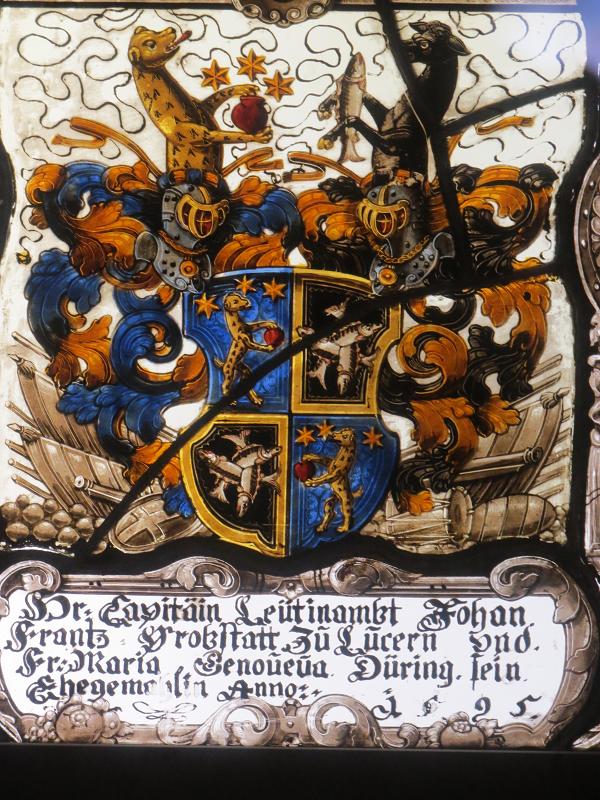 Hr: Capitäin Leütinambt Johan
Frantz Probstatt Zü Lŭcern vnd.
Fr: Maria Genoŭeŭa Düring. sein
Ehegemahlin Anno:.
1695.